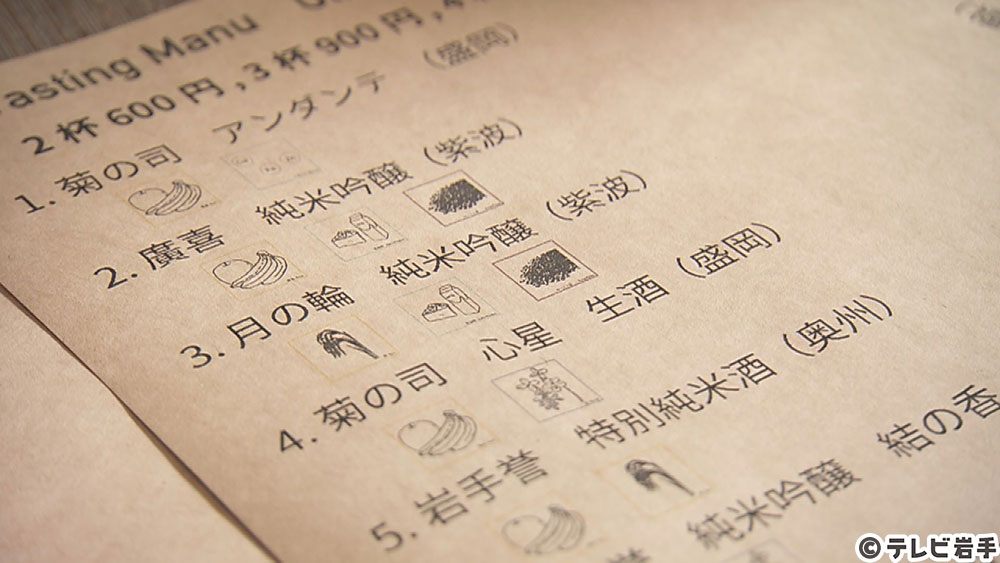 asting Manu
2杯600円,3杯900円,4
1. 菊の司 アンダンテ (盛岡)
2. 廣喜 純米吟醸 (紫波)
3. 月の輪 純米吟醸 (紫波)
4. 菊の司 心星 生酒 (盛岡)
5. 岩手誉 特別純米酒 (奥州)
誉 純米吟醸 結の香
©テレビ岩手